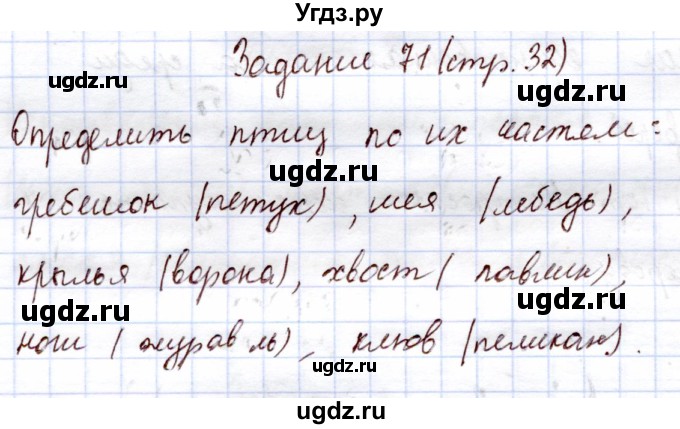 Угдз.ру
Задание 71 (стр. 32)
ugdz.ru
ugdz.ru
Определить птиц по их частям:
ugdz.ru
ugdz.ru
гребешок (петух), шея (лебедь),
ugdz.ru
ugdz.ru
крылья (ворона), хвост (павлин),
ugdz.ru
ugdz.ru
ноги (журавль), клюв (пеликан).
ugdz.ru
ugdz.ru
ugdz.ru